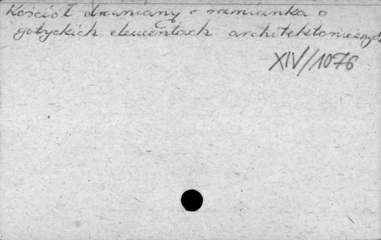 Kościół drewniany z ramianka o
gotyckich elementach architektonicznych
XIV/1076